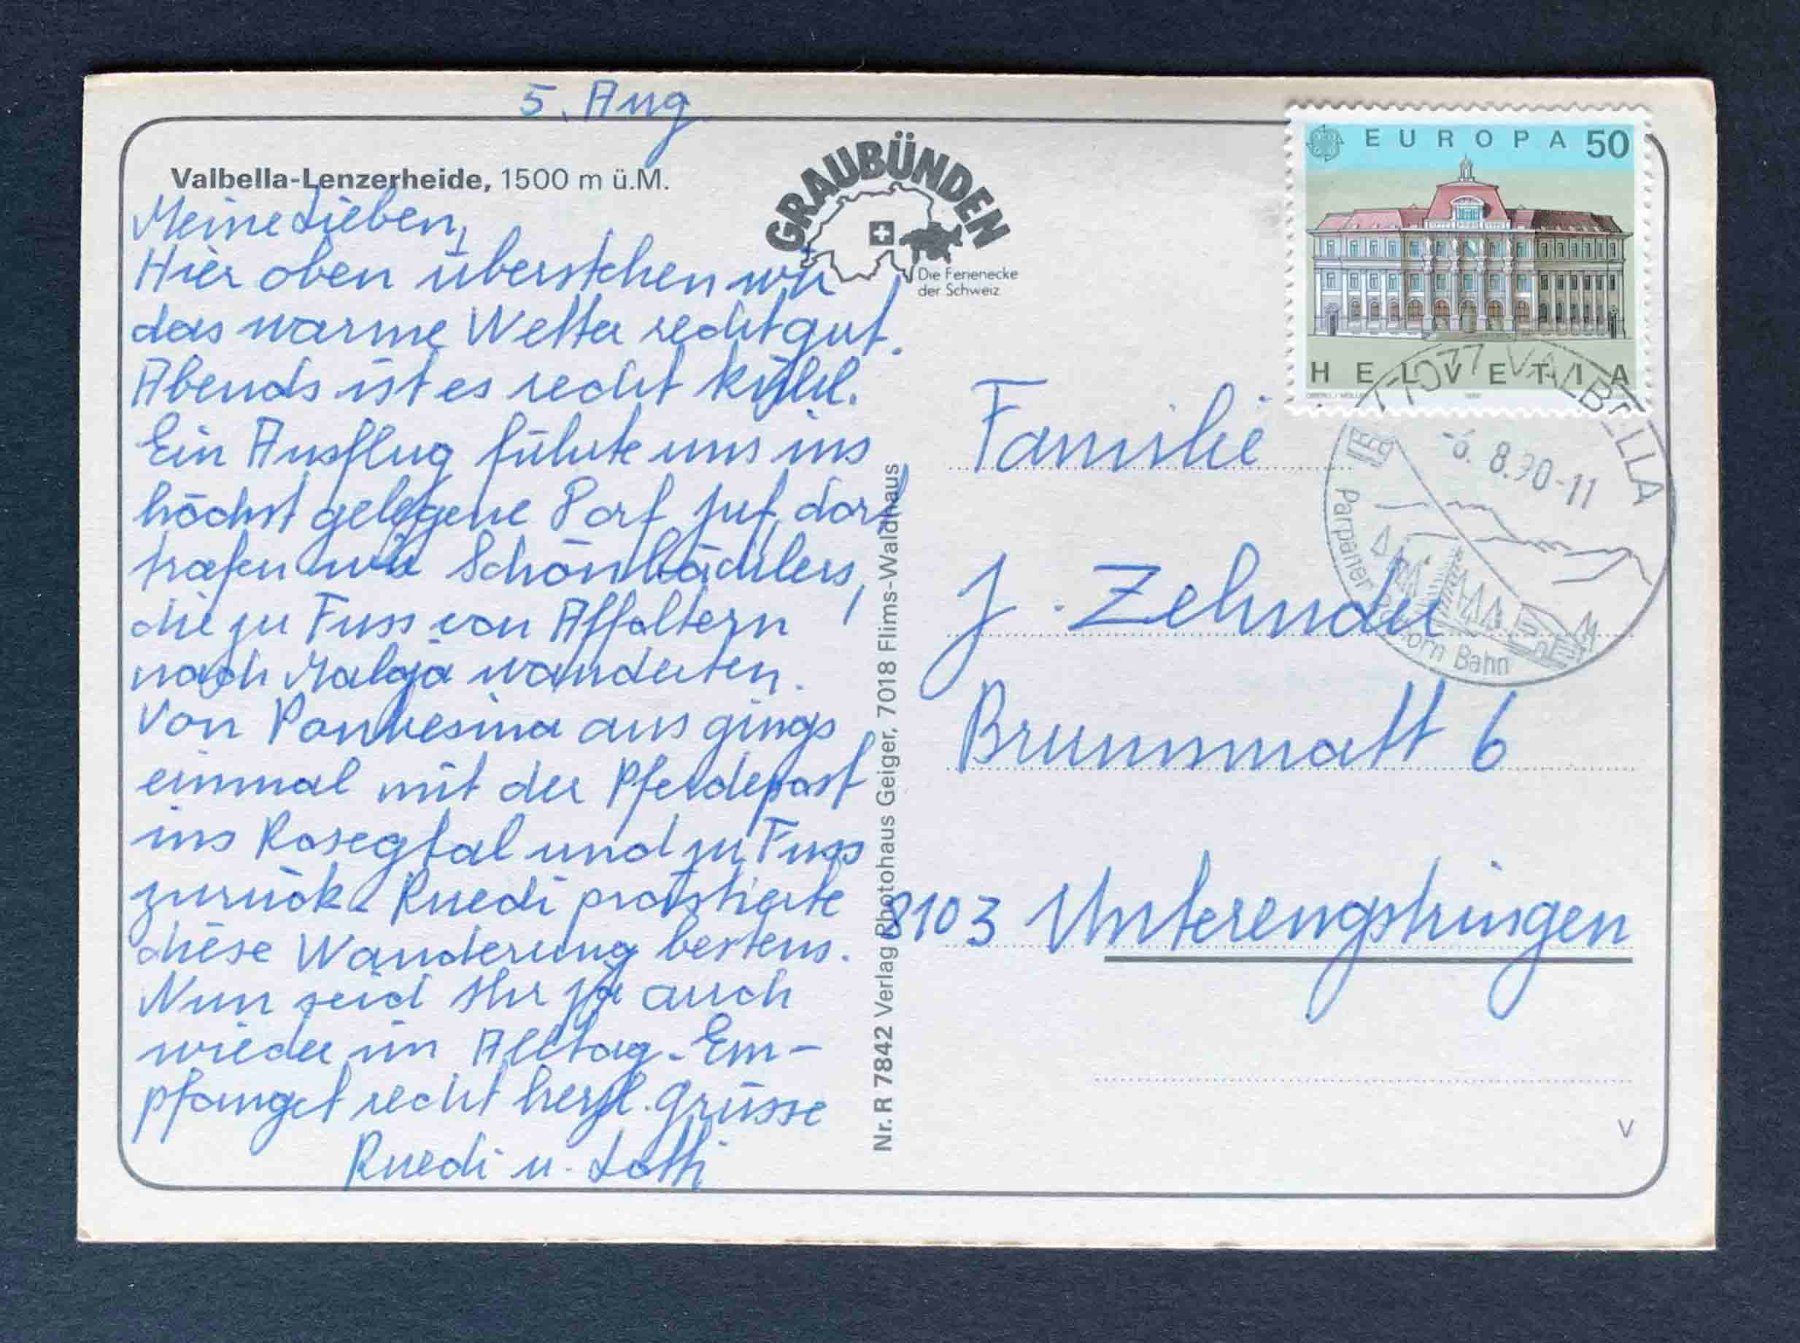 5. Aug.
Valbella-Lenzerheide, 1500 m ü.M.
Meine Lieben,
Hier oben überstehen wir
das warme Wetter recht gut.
Abends ist es recht kühl.
Ein Ausflug führte uns ins
höchst gelegene Dorf Juf, dort
trafen wir Schönbächlers,
die zu Fuss von Affoltern
nach Maloja wanderten.
Von Pontresina aus gings
einmal mit der Pferdepost
ins Rosegtal und zu Fuss
zurück. Ruedi prästierte
diese Wanderung bestens.
Nun seid Ihr ja auch
wieder im Alltag. Em-
pfanget recht herzl. Grüsse
Ruedi u. Lotti
GRAUBÜNDEN
Die Ferienecke
der Schweiz
Nr. R 7842 Verlag Photohaus Geiger, 7018 Flims-Waldhaus
EUROPA 50
HELVETIA
7077 VALBELLA
-6. 8.90-11
Parpaner Rothorn Bahn
Familie
J. Zehnder
Brunnmatt 6
8103 Unterengstringen
V